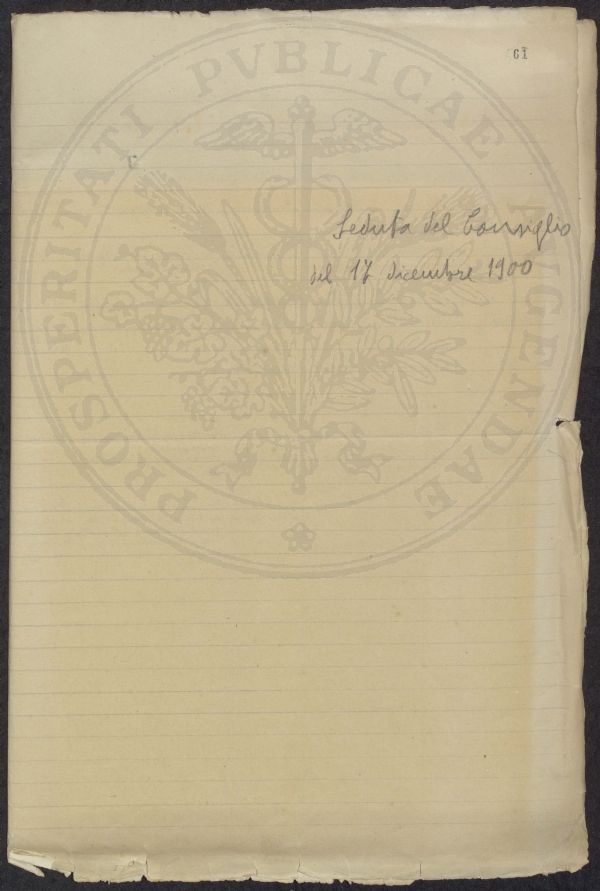 61
Seduta del Consiglio
del 17 dicembre 1900
PROSPERITATI PVBLICAE AVGENDAE